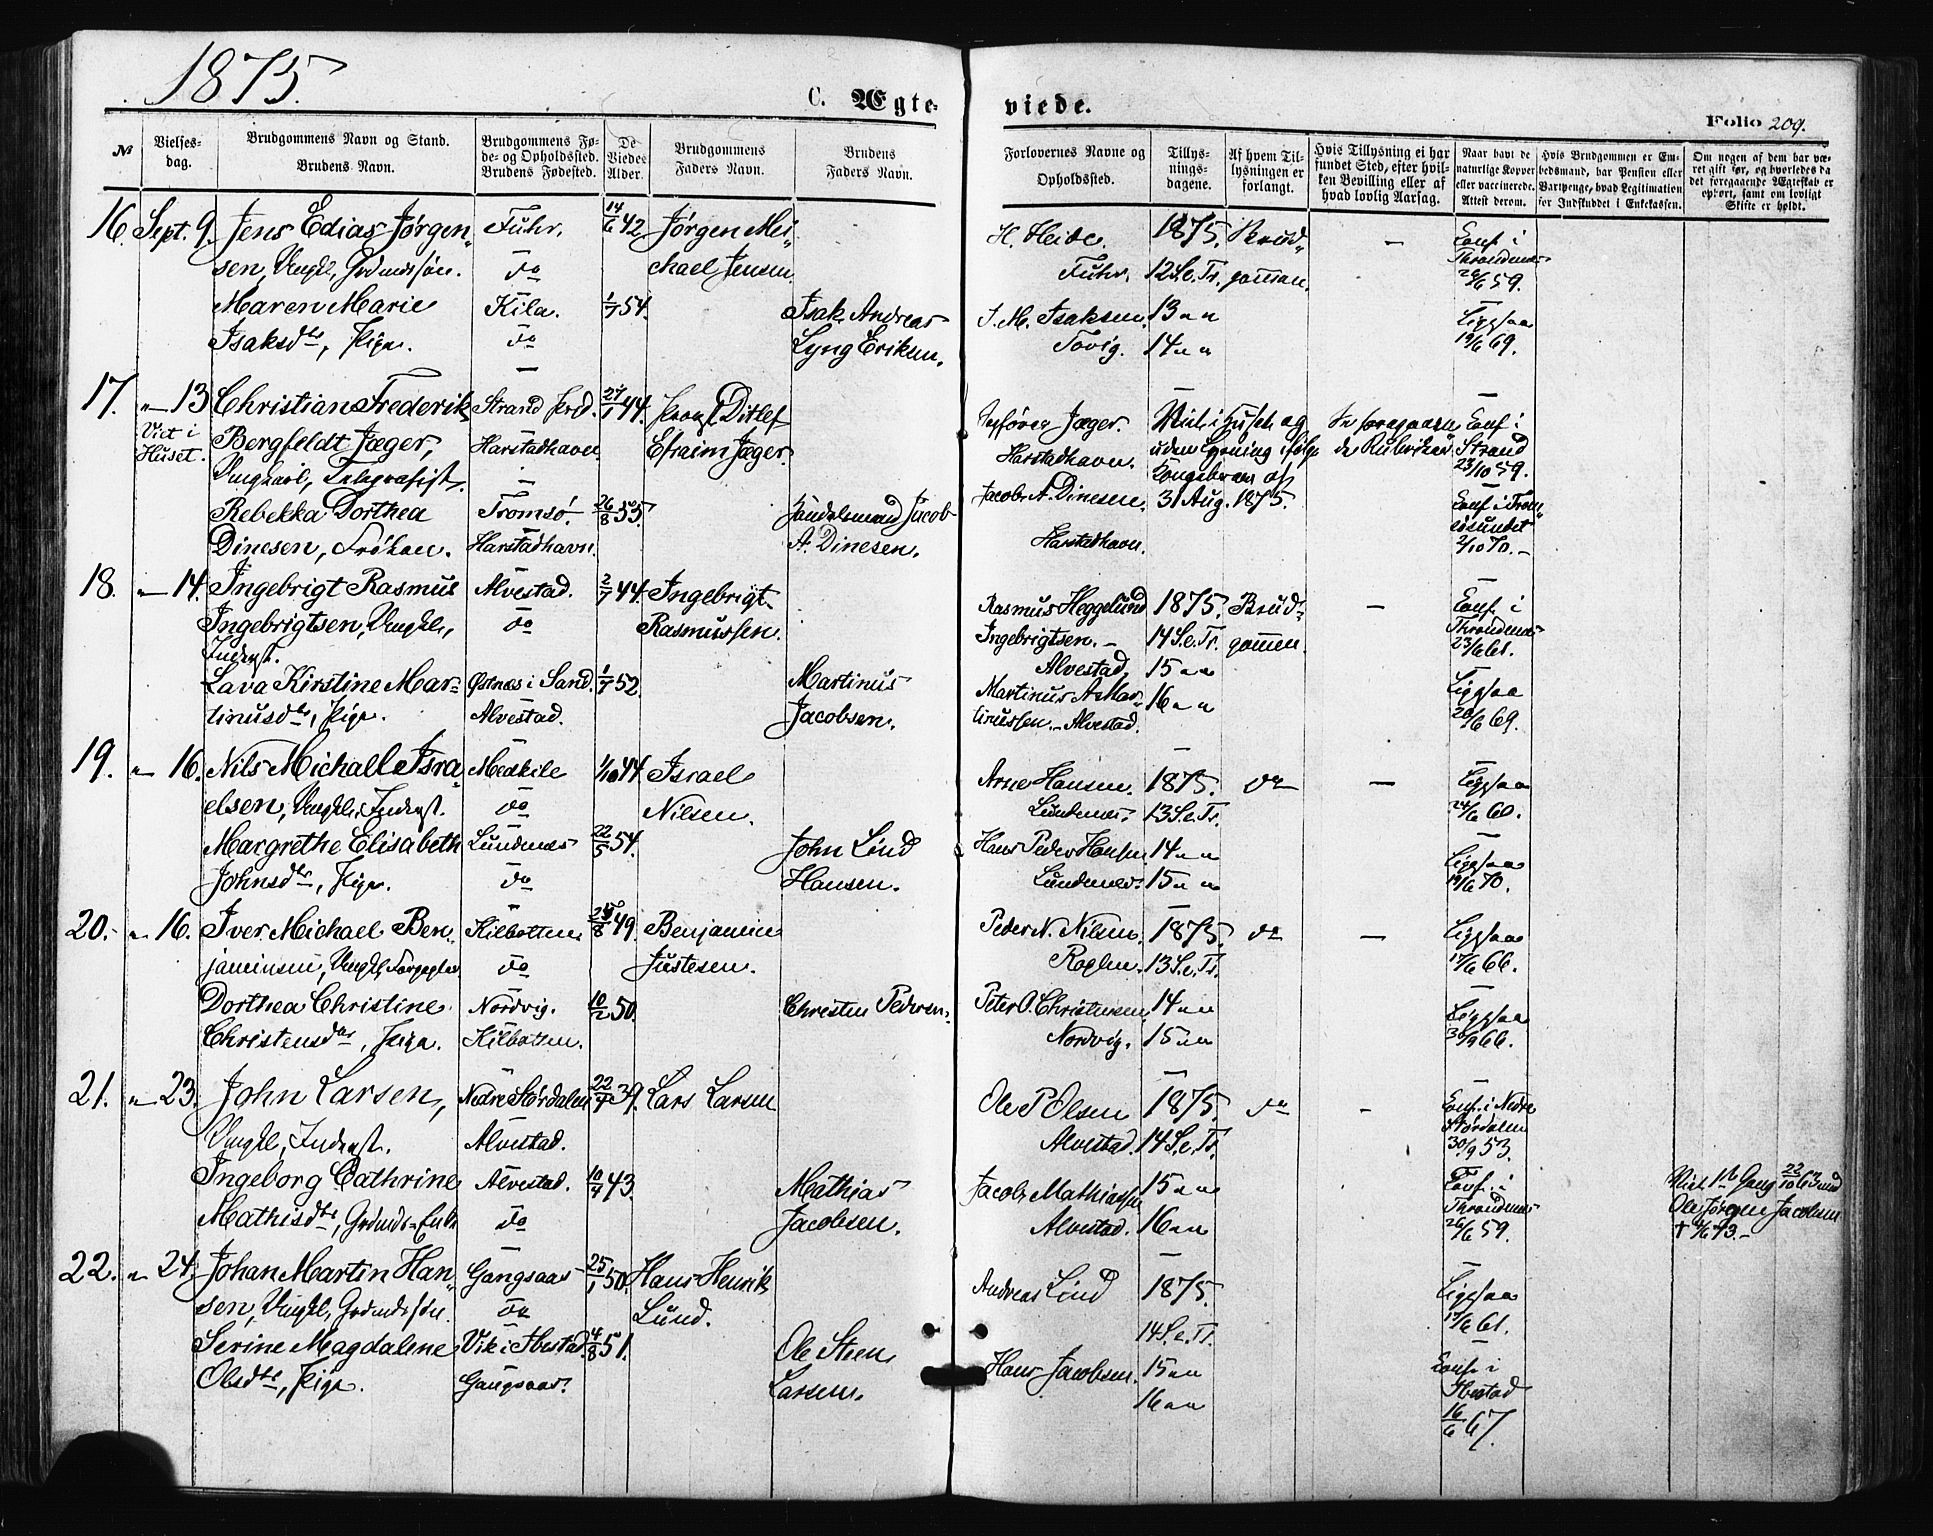 1875.
C. Ægte-
viede.
Folio 209.
№
Vielses-
dag.
Brudgommens Navn og Stand.
Brudens Navn.
Brudgommens Fø-
de- og Opholdssted.
Brudens Fødested.
De
Viedes
Alder.
Brudgommens
Faders Navn.
Brudens
Faders Navn.
Forlovernes Navne og
Opholdssted.
Tillys-
nings-
dagene.
Af hvem Til-
lysningen er
forlangt.
Hvis Tillysning ei har
fundet Sted, efter hvil-
ken Bevilling eller af
hvad lovlig Aarsag.
Naar havt de
naturlige Kopper
eller vaccinerede.
Attest derom.
Hvis Brudgommen er Em-
bedsmand, har Pension eller
Vartpenge, hvad Legitimation
for Indskuddet i Enkekassen.
Om nogen af dem har væ-
ret gift før, og hvorledes da
det foregaaende Ægteskab er
ophørt, samt om lovligt
Skifte er holdt.
16. Sept. 9. Jens Edias Jørgen- Fuhr. 14/6 42. Jørgen Mi-
sen, Ungkl, Gdmdssøn. do chael Jensen
Maren Marie Kila. 1/7 54. Isak Andreas
Isaksdtr, Pige. do Lyng Eriksen.
H. Heide. 1875. Brud- — Conf. i
Fuhr. 12 S. e. Tr. gomman. Throndenæs
59.
I. M. Isaksen. 13 " " Ligesaa
Tovig. 14 " " 19/6 69.
17. " 13 Christian Frederik Strand Prd. 27/1 44. Provst Ditlef
Viet i Bergfeldt Jæger, Harstadhavn. Efraim Jæger.
Huset. Ungkarl, Telegrafist. —
Rebekka Dorthea Tromsø. 26/8 55. Handelsmand Jacob
Dinesen, Frøken. Harstadhavn. A. Dinesen.
Jæger. Viet i Huset og Se foregaaen- Conf. i
Harstadhavn. uden Lysning ifølge de Rubrikker Strand
Kongebrev af 23/10 59.
Jacob A. Dinesen. 31 Aug. 1875. Conf. i Trom-
søsundet
Harstadhavn. 2/10 70. —
18. " 14. Ingebrigt Rasmus Alvestad. 2/7 44. Ingebrigt
Ingebrigtsen, Ungkl, do Rasmussen.
Inderst.
Lava Kirstine Mar- Østnæs i Sand. 1/7 52. Martinus
tinusdtr, Pige. Alvestad. Jacobsen.
Rasmus Heggelund 1875. Brud- — Conf. i
Ingebrigtsen. — 14 S. e. Tr. gommen. Throndenæs
Alvestad, 15 " " 23/6 61.
Martinus A Mar- 16 " " Ligesaa
tinussen. — Alvestad. 20/6 69.
19. " 16. Nils Michall Isra- Medkile 1/10 44. Israel
elsen, Ungkl, Inderst. do Nilsen.
Margrethe Elisabeth Lundenæs 22/5 54. John Lind
Johnsdtr, Pige. do Hansen.
Arne Hansen. 1875. do — Ligesaa
Lundenæs. 13 S. e. Tr. 24/6 60.
Hans Peder Hansen. 14 " " Ligesaa
Lundenæs. 15 " " 19/6 70.
20. " 16. Iver Michael Ben- Kilbotten 49. Benjamin
jaminsen, Ungkl, do Justesen.
Dorthea Christine Nordvig. 10/2 50. Christen Pedersen.
Christensdtr, Pige. Kilbotten.
Peder N. Nilsen. 1875. do — Ligesaa
Roglen. 13 S. e. Tr. 17/6 66.
Peter O. Christensen 14 " " Ligesaa
Nordvig. 15 " " 30/9 66.
21. " 23. John Larsen, Nedre Størdalen 22/7 39. Lars Larsen
Ungkl, Inderst. Alvestad.
Ingeborg Cathrine Alvestad. 10/7 43. Mathias
Mathisdtr, Gdmds-Enke do Jacobsen.
Ole P Olsen 1875. do — Conf. i Nedre
Alvestad. 14 S. e. Tr. Størdalen
30/9 53.
Jacob Mathiassen 15 " " Conf. i Viet 1ste Gang 22/10 63 med
Alvestad. 16 " " Throndenæs Ole Jørgen Jacobsen
26/6 59. † 73. —
22. " 24. Johan Martin Han- Gangsaas 25/1 50. Hans Henrik
sen, Ungkl, Gdmdssøn. do Lund.
Serine Magdalene Vik i Ibestad. 4/8 51. Ole Steen
Olsdtr, Pige. Gangsaas. Larsen.
Andreas Lind 1875. Ligesaa
14 S. e. Tr. 17/6 61.
Hans Jacobsen. 15 " " Conf. i
16 " " Ibestad
16/6 67.